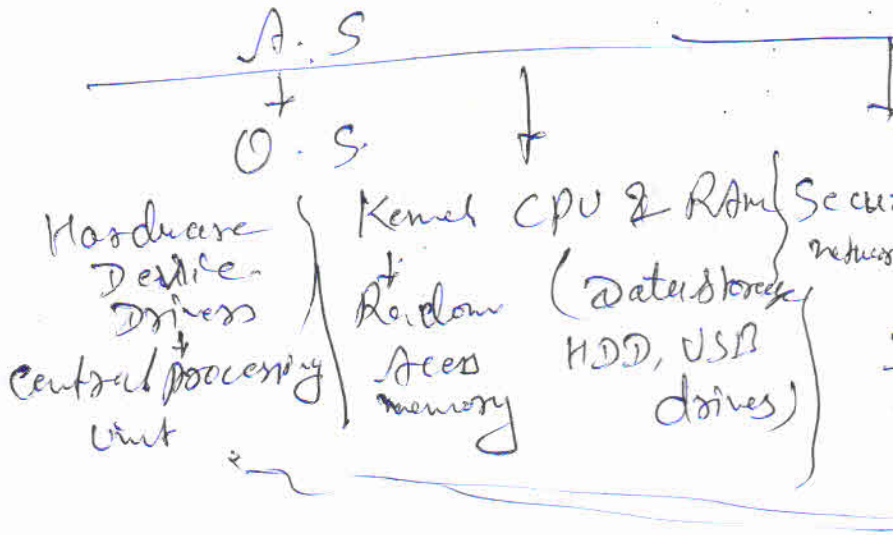 A.S
O.S.
Hardware
Device
Drivers
Central processing
Unit
Kernel CPU & RAM
Random
Acess
memory
(Data storage
HDD, USB
drives)
Secu
networ